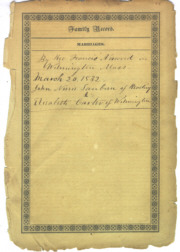 Family Record.
MARRIAGES.
By Rev. Francis Norwood in
Wilmington Mass.
March 20. 1842
John Sanborn of
&
Elizabeth Carter of Wilmington